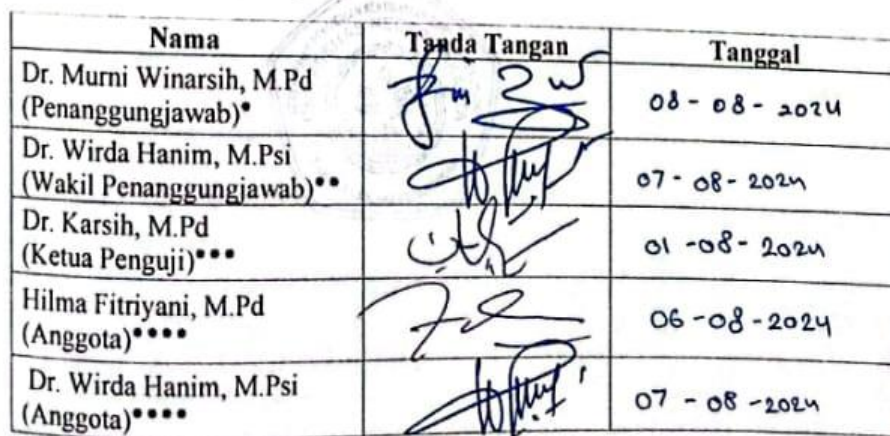 Nama Tanda Tangan Tanggal
Dr. Murni Winarsih, M.Pd
(Penanggungjawab)* 08 - 08 - 2024
Dr. Wirda Hanim, M.Psi
(Wakil Penanggungjawab)** 07 - 08 - 2024
Dr. Karsih, M.Pd
(Ketua Penguji)*** 01 - 08 - 2024
Hilma Fitriyani, M.Pd
(Anggota)**** 06 - 08 - 2024
Dr. Wirda Hanim, M.Psi
(Anggota)**** 07 - 08 - 2024